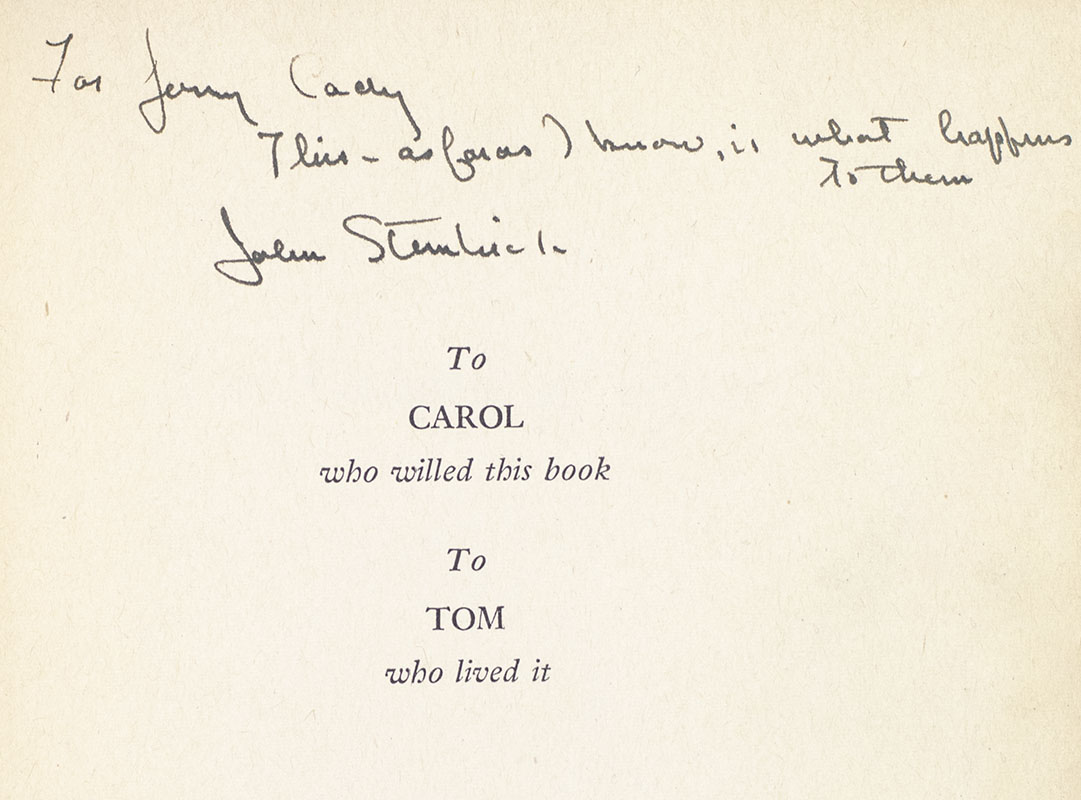 For Jerry Cady
This - as far as I know, is what happens
to them
John Steinbeck
To
CAROL
who willed this book
To
TOM
who lived it